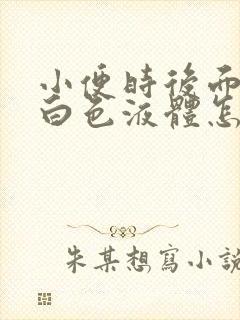 小便時後而
白色液體怎
朱某想寫小說